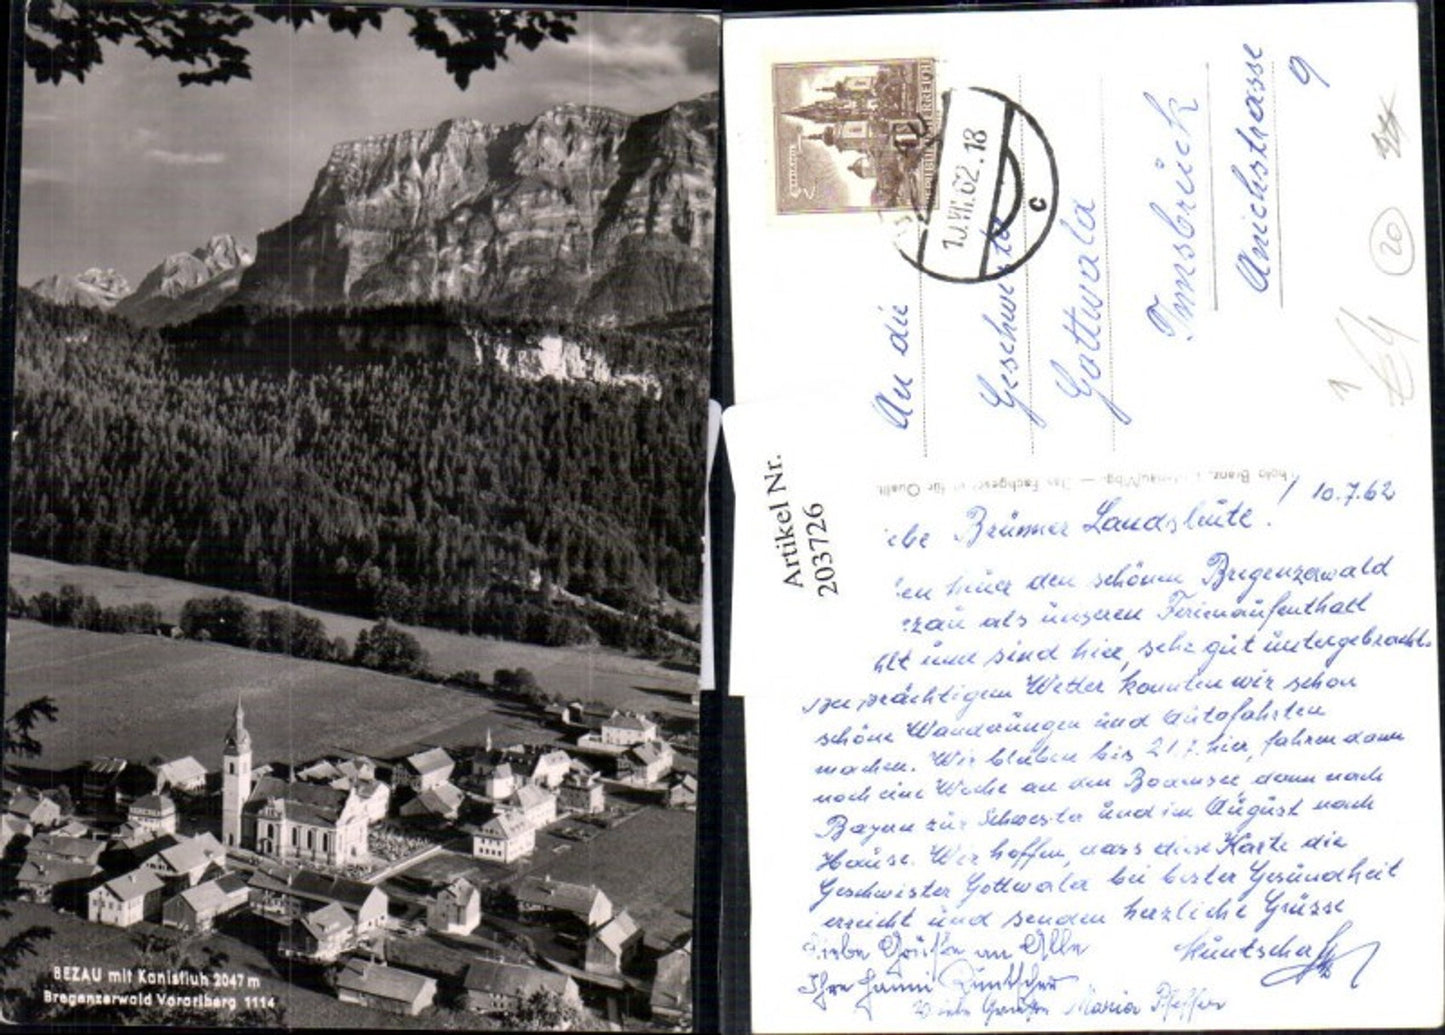 BEZAU mit Kanisfluh 2047 m
Bregenzerwald Vorarlberg 1114
REPUBLIK ÖSTERREICH
10.VII.62.18
c
An die
Geschwister
Gottwald
Innsbruck
Anichstrasse
9
20
Artikel Nr.
203726
10.7.62
iebe Brünner Landsleute.
en heuer den schönen Bregenzerwald
zau als unseren Ferienaufenthalt
hlt und sind hier, sehr gut untergebracht.
prächtigem Wetter konnten wir schon
schöne Wanderungen und Autofahrten
machen. Wir bleiben bis 21.7. hier, fahren dann
noch eine Woche an den Bodensee, dann nach
Bayern zur Schwester und im August nach
Hause. Wir hoffen, dass diese Karte die
Geschwister Gottwald bei bester Gesundheit
erreicht und senden herzliche Grüsse
Liebe Grüße an Alle
Ihre
Viele Grüße Maria Pfeffer